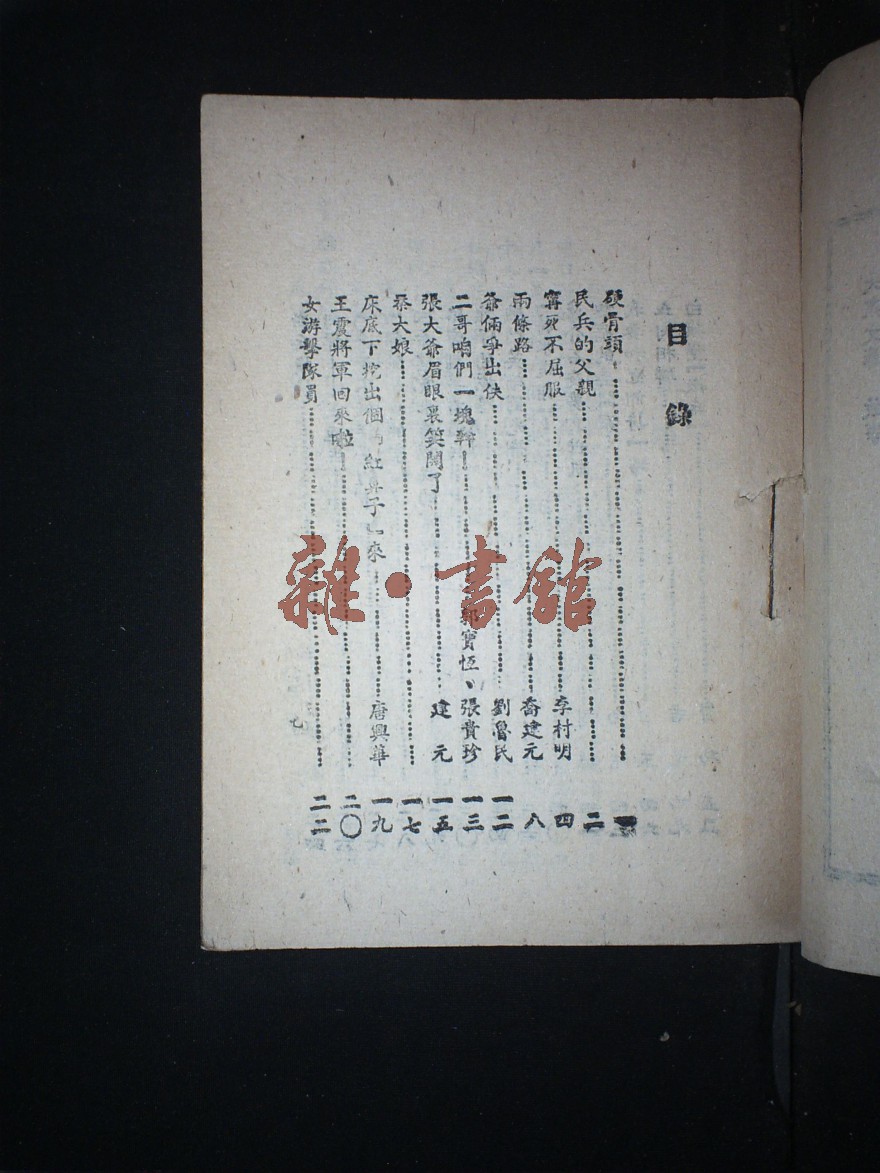 目錄
硬骨頭 一
民兵的父親 二
寗死不屈服 李村明 四
兩條路 喬建元 八
爺倆爭出伕 劉魯民 一二
二哥咱們一塊幹 郭寶恆、張貴珍 一三
張大爺眉眼裏笑開了 建元 一五
大娘 一七
床底下挖出個「紅鼻子」來 唐興華 一九
王震將軍回來啦 二〇
女游擊隊員 二二
雜·書館